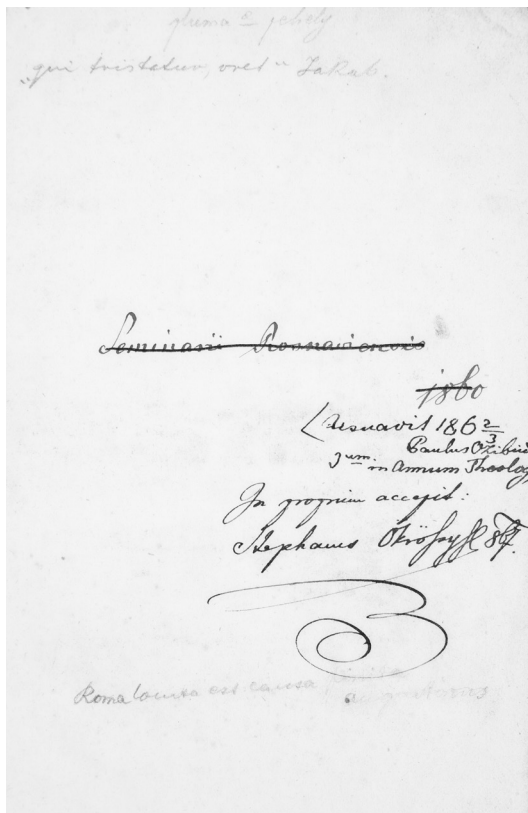 pluma = pehely
„qui tristatur, oret" Jakab.
Seminarii Rosnaviensis
1860
Usuavit 186 2/3
Paulus
3um in Annum Theolog
In propriu accepit:
Stephanus Ökrössy
Roma locuta est causa finita